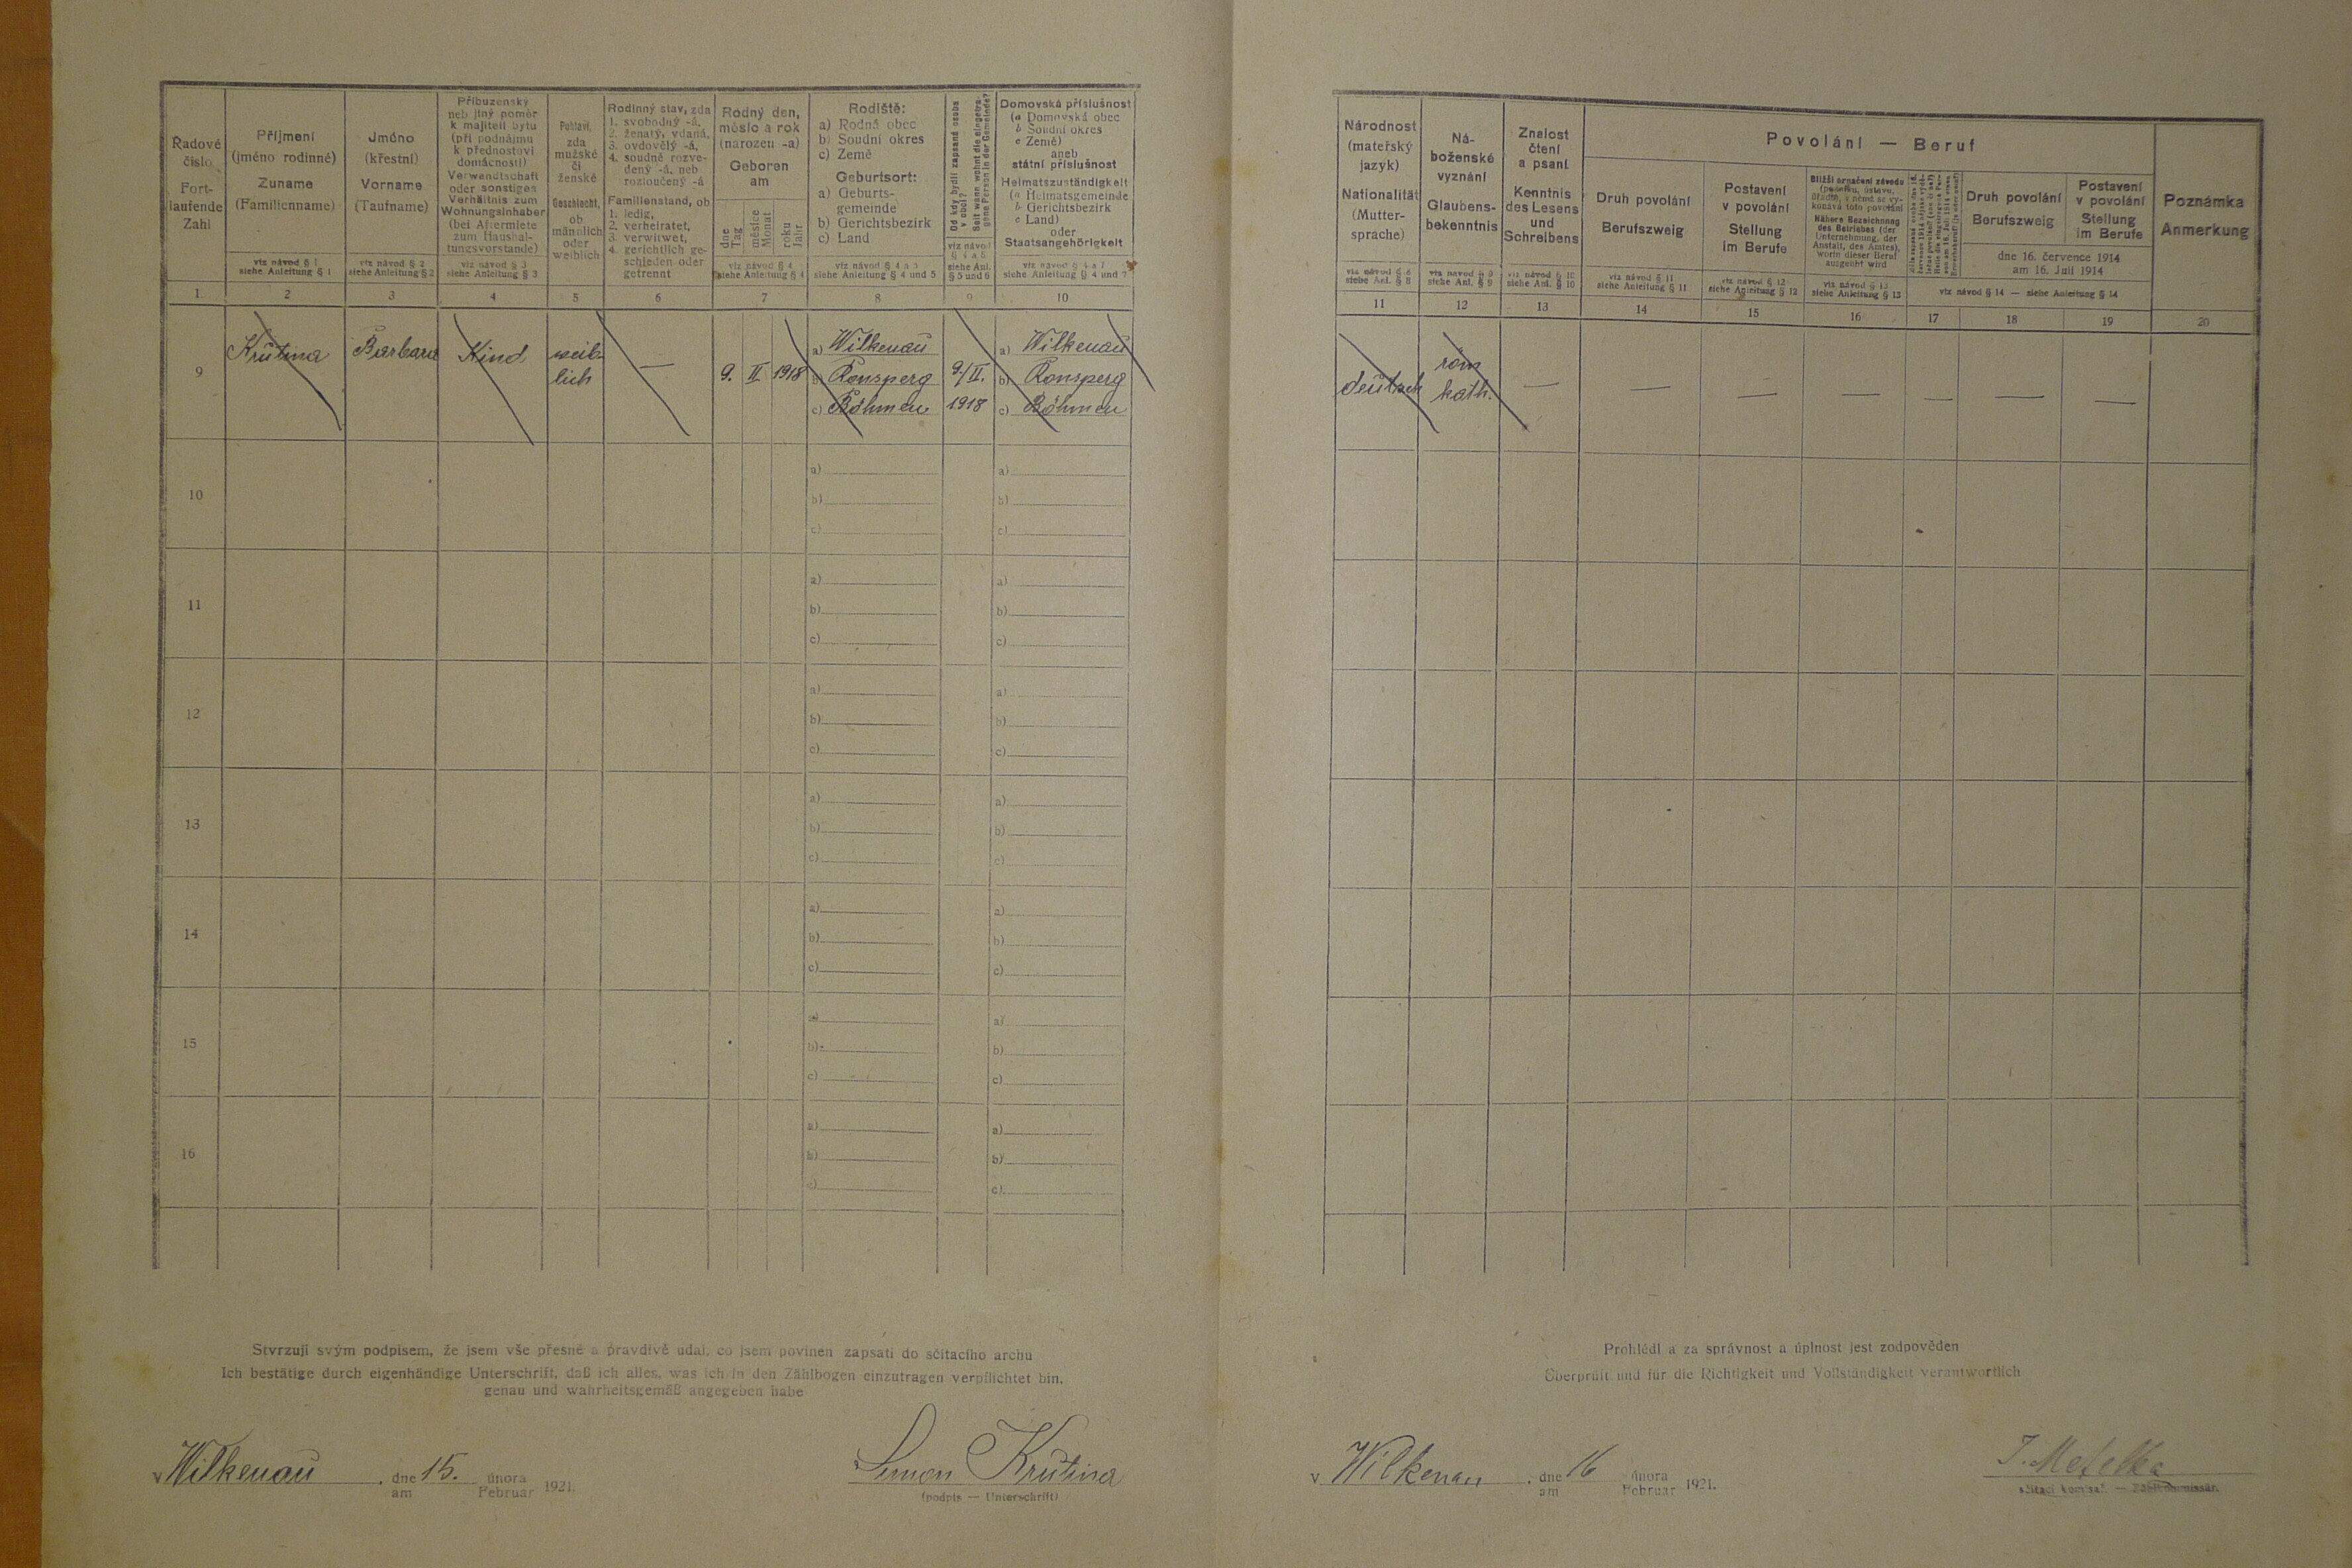 Řadové
číslo
Fort-
laufende
Zahl
1
Příjmení
(jméno rodinné)
Zuname
(Familienname)
viz návod § 1
siehe Anleitung § 1
2
Jméno
(křestní)
Vorname
(Taufname)
viz návod § 2
siehe Anleitung § 2
3
Příbuzenský
neb jiný poměr
k majiteli bytu
(při podnájmu
k přednostovi
domácnosti)
Verwandtschaft
oder sonstiges
Verhältnis zum
Wohnungsinhaber
(bei Aftermiete
zum Haushal-
tungsvorstande)
viz návod § 3
siehe Anleitung § 3
4
Pohlaví,
zda
mužské
či
ženské
Geschlecht,
ob
männlich
oder
weiblich
5
Rodinný stav, zda
1. svobodný -á,
2. ženatý, vdaná,
3. ovdovělý -á,
4. soudně rozve-
dený -á, neb
rozloučený -á
Familienstand, ob
1. ledig,
2. verheiratet,
3. verwitwet,
4. gerichtlich ge-
schieden oder
getrennt
6
Rodný den,
měsíc a rok
(narozen -a)
Geboren
am
dne
Tag
měsíce
Monat
roku
Jahr
viz návod § 4
siehe Anleitung § 4
7
Rodiště:
a) Rodná obec
b) Soudní okres
c) Země
Geburtsort:
a) Geburts-
gemeinde
b) Gerichtsbezirk
c) Land
viz návod § 4 a 5
siehe Anleitung § 4 und 5
8
Od kdy bydlí zapsaná osoba
v obci?
Seit wann wohnt die eingetra-
gene Person in der Gemeinde?
viz návod
§ 5 a 6
siehe Anl.
§ 5 und 6
9
Domovská příslušnost
(a Domovská obec
b Soudní okres
c Země)
aneb
státní příslušnost
Heimatszuständigkeit
(a Heimatsgemeinde
b Gerichtsbezirk
c Land)
oder
Staatsangehörigkeit
viz návod § 4 a 7
siehe Anleitung § 4 und 7
10
Národnost
(mateřský
jazyk)
Nationalität
(Mutter-
sprache)
viz návod § 8
siehe Anl. § 8
11
Ná-
boženské
vyznání
Glaubens-
bekenntnis
viz návod § 9
siehe Anl. § 9
12
Znalost
čtení
a psaní
Kenntnis
des Lesens
und
Schreibens
viz návod § 10
siehe Anl. § 10
13
Povolání — Beruf
Druh povolání
Berufszweig
viz návod § 11
siehe Anleitung § 11
14
Postavení
v povolání
Stellung
im Berufe
viz návod § 12
siehe Anleitung § 12
15
Bližší označení závodu
(podniku, ústavu,
úřadu), v němž se vy-
konává toto povolání
Nähere Bezeichnung
des Betriebes (der
Unternehmung, der
Anstalt, des Amtes),
worin dieser Beruf
ausgeübt wird
viz návod § 13
siehe Anleitung § 13
16
17
Druh povolání
Berufszweig
Postavení
v povolání
Stellung
im Berufe
dne 16. července 1914
am 16. Juli 1914
viz návod § 14 — siehe Anleitung § 14
18
19
Poznámka
Anmerkung
20
9
Krutina
Barbara
Kind
weib-
lich
—
9. II 1918
a) Wilkenau
b) Ronsperg
c) Böhmen
9./II.
1918
a) Wilkenau
b) Ronsperg
c) Böhmen
deutsch
röm
kath.
— — — — — — —
10
a)
b)
c)
a)
b)
c)
11
a)
b)
c)
a)
b)
c)
12
a)
b)
c)
a)
b)
c)
13
a)
b)
c)
a)
b)
c)
14
a)
b)
c)
a)
b)
c)
15
a)
b)
c)
a)
b)
c)
16
a)
b)
c)
a)
b)
c)
Stvrzuji svým podpisem, že jsem vše přesně a pravdivě udal, co jsem povinen zapsati do sčítacího archu
Ich bestätige durch eigenhändige Unterschrift, daß ich alles, was ich in den Zählbogen einzutragen verpflichtet bin,
genau und wahrheitsgemäß angegeben habe
v Wilkenau, dne 15. února 1921.
am Februar
Simon Krutina
(podpis — Unterschrift)
Prohlédl a za správnost a úplnost jest zodpověden
Überprüft und für die Richtigkeit und Vollständigkeit verantwortlich
v Wilkenau, dne 16 února 1921.
am Februar
J. Metelka
sčítací komisař — Zählkommissär.